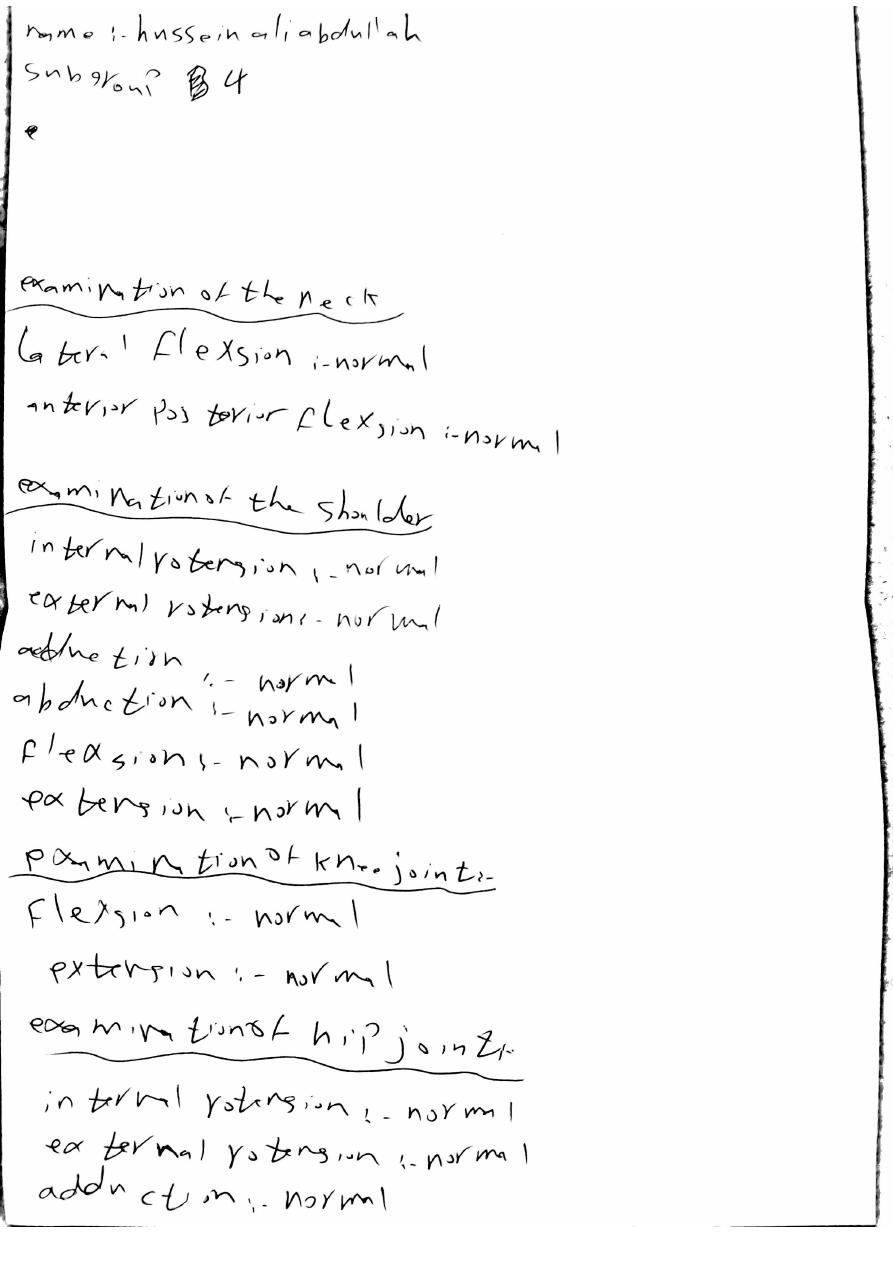 name :- hussein ali abdullah
Subgroup B 4
examination of the neck
lateral flexsion :- normal
anterior posterior flexsion :- normal
examination of the shoulder
internal rotension :- normal
external rotension :- normal
adduction :- normal
abduction :- normal
flexsion :- normal
extension :- normal
examination of knee joint :-
flexsion :- normal
extension :- normal
examination of hip joint :-
internal rotension :- normal
external rotension :- normal
adduction :- normal